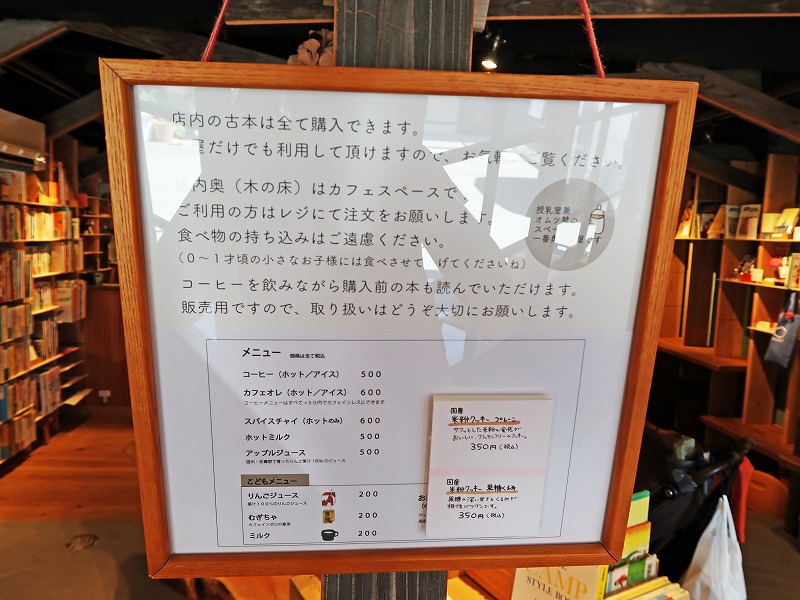 店内の古本は全て購入できます。
屋だけでも利用して頂けますので、お気軽 ご覧ください。
内奥（木の床）はカフェスペースで、
ご利用の方はレジにて注文をお願いします。
食べ物の持ち込みはご遠慮ください。
（０～１才頃の小さなお子様には食べさせて げてくださいね）
授乳室兼
オムツ替の
スペー
一番奥 屋です
コーヒーを飲みながら購入前の本も読んでいただけます。
販売用ですので、取り扱いはどうぞ大切にお願いします。
メニュー 価格は全て税込
コーヒー（ホット／アイス） 500
カフェオレ（ホット／アイス） 600
コーヒーメニューはすべて+50円でカフェインレスにできます
スパイスチャイ（ホットのみ） 600
ホットミルク 500
アップルジュース 500
信州・安曇野で育ったりんご果汁100%のジュース
こどもメニュー
りんごジュース 200
果汁100%のりんごジュース
むぎちゃ 200
カフェインゼロの麦茶
ミルク 200
国産
米粉クッキー プレーン
サクッとした米粉の食感が
おいしい、グルテンフリーのクッキー。
350円（税込）
国産
米粉クッキー 黒糖くるみ
黒糖の深い甘さとくるみが
相性バツグンです。
350円（税込）
STYLE BOOK